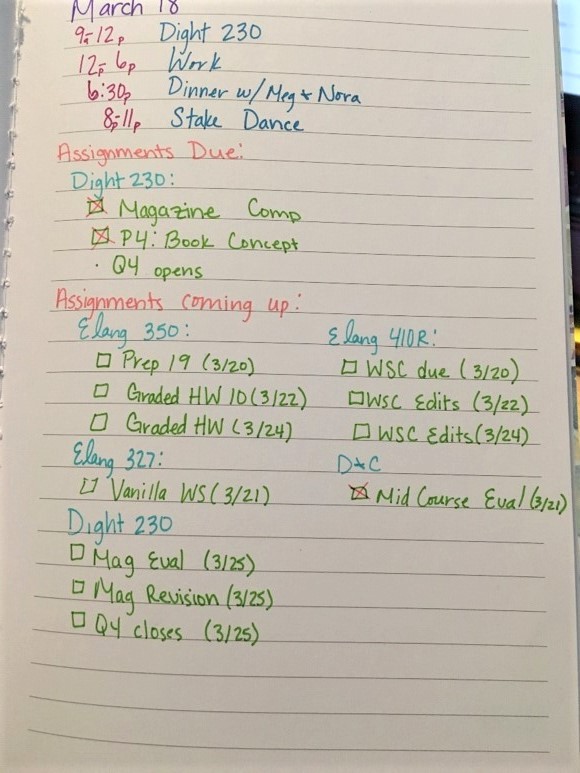 March 18
9a-12p Dight 230
12p-6p Work
6:30p Dinner w/ Meg & Nora
8p-11p Stake Dance
Assignments Due:
Dight 230:
Magazine Comp
P4: Book Concept
· Q4 opens
Assignments coming up:
Elang 350:
Prep 19 (3/20)
Graded HW 10 (3/22)
Graded HW (3/24)
Elang 410R:
WSC due (3/20)
WSC Edits (3/22)
WSC Edits (3/24)
Elang 327:
Vanilla WS (3/21)
D&C
Mid Course Eval (3/21)
Dight 230
Mag Eval (3/25)
Mag Revision (3/25)
Q4 closes (3/25)